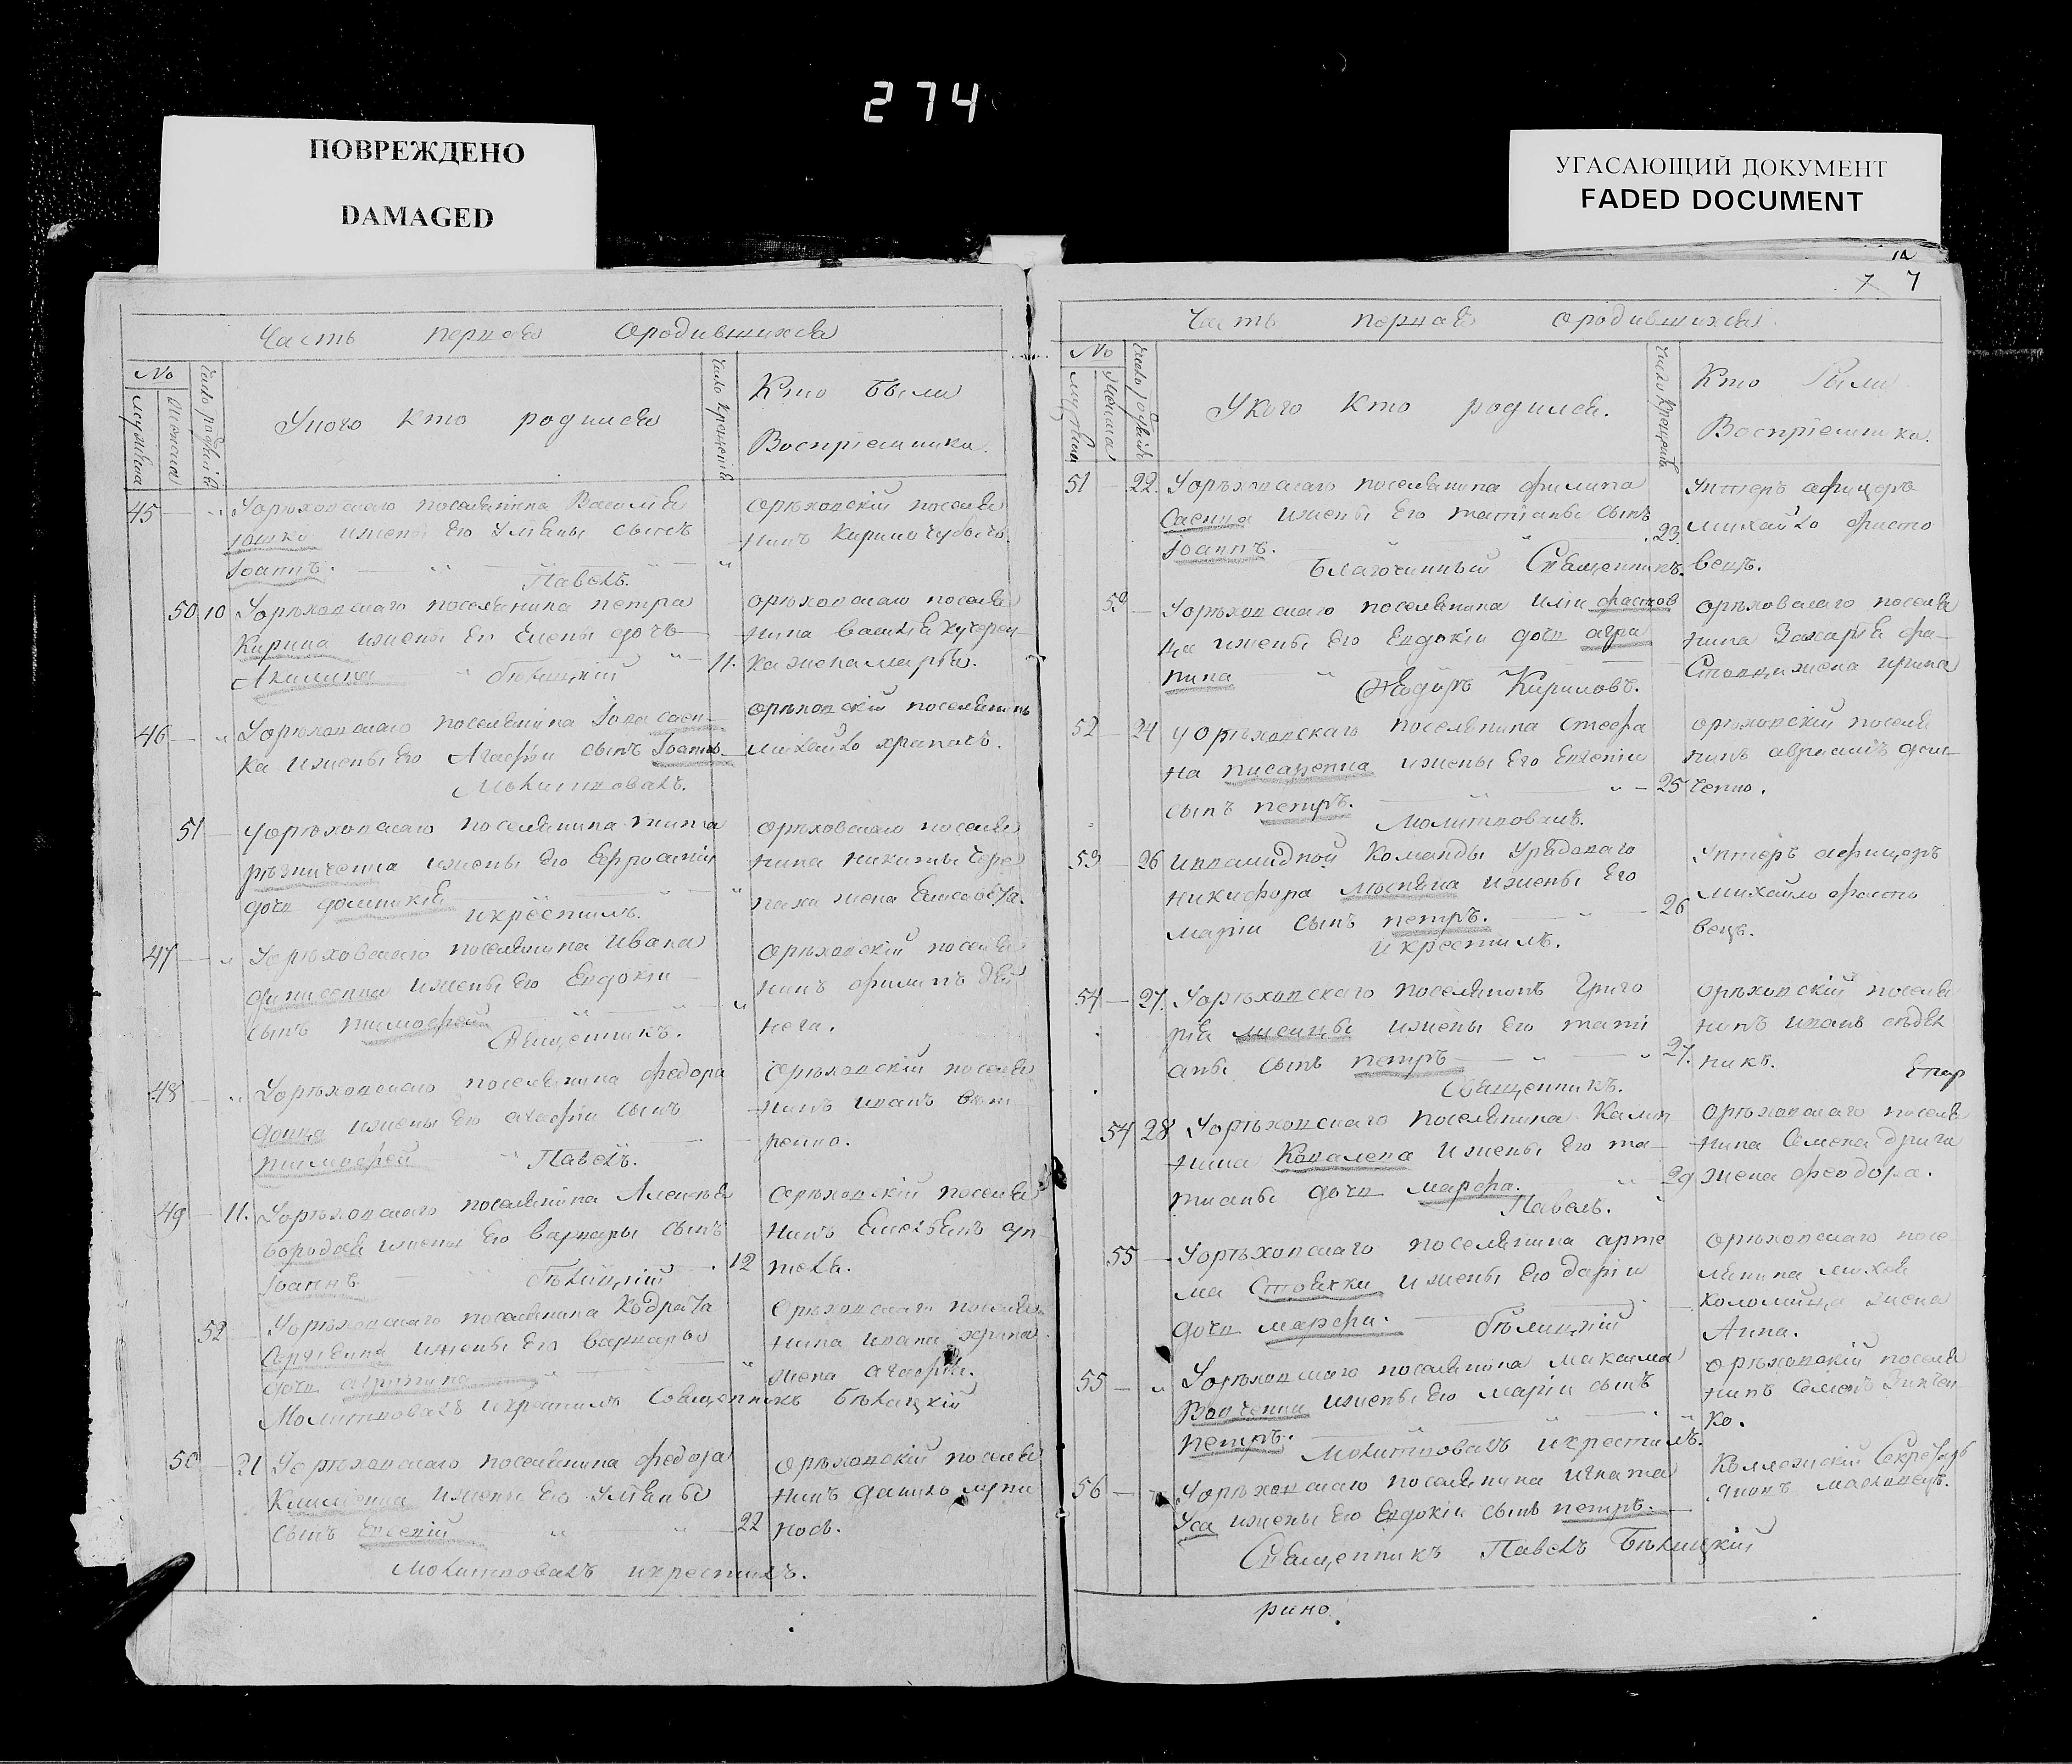 274
ПОВРЕЖДЕНО
DAMAGED
УГАСАЮЩИЙ ДОКУМЕНТ
FADED DOCUMENT
Часть первая ородившихся
№
мужеска
женска
число рождения
Укого кто родился
число крещения
Кто Были
Восприемники.
45 — " Уорѣховскаго поселянина Василія
юшко ижены его Уліяны сынъ
Іоаннъ.
Павелъ.
орѣховскій поселя
нинъ Кирило
50 10 Уорѣховскаго поселянина петра
Кирина ижены его Елены дочь
Акилина 11.
бѣлицкій
орѣховскаго поселя
нина василія кучерен
ка жена марѳа.
46 — " Уорѣховскаго поселянина Іова саен
ка ижены его Агафіи сынъ Іоаннъ
Молитвовалъ.
орѣховскій поселянинъ
михайло храпалъ.
51 — Уорѣховскаго поселянина тита
рѣзниченка ижены его Ефросиніи
дочь домникія "
икрестилъ.
орѣховскаго поселя
нина никиты чере
пахи жена Елисавета.
47 — " Уорѣховскаго поселянина Ивана
денисенка ижены его Евдокіи
сынъ тимофей "
Священникъ.
орѣховскій поселя
нинъ филипъ дей
нега.
48 — " Уорѣховскаго поселянина федора
донца ижены его агафіи сынъ
тимофей
Павелъ.
орѣховскій поселя
нинъ иванъ
49 — 11. Уорѣховскаго поселянина Алексѣя
бородая ижены его варвары сынъ
Іоаннъ 12
бѣлицкій
орѣховскій поселя
нинъ Емельянъ
52 — Уорѣховскаго поселянина Кодрата
Сергіенка ижены его варвары
дочь агрипина "
орѣховскаго поселя
нина ивана храпал
жена агафія.
Молитвовалъ икрестилъ Священникъ Бѣлицкій
50 — 21 Уорѣховскаго поселянина федора
Климіенка ижены его Уліяны
сынъ Евсений 22
Молитвовалъ икрестилъ.
орѣховскій поселя
нинъ данило
носъ.
7 7
Часть первая ородившихся
№
мужеска
женска
число рождения
Укого кто родился.
число крещения
Кто Были
Восприемники.
51 — 22. Уорѣховскаго поселянина филипа
Саенка ижены его татіаны сынъ
Іоаннъ. 23.
Благочинный Священникъ.
Унтеръ афицеръ
михайло фасто
вецъ.
53 — Уорѣховскаго поселянина Иліи фастов
ца ижены его Евдокіи дочь агра
пина
Ѳеодоръ Кириловъ.
орѣховскаго поселя
нина Захарія фа
стовца жена ирина
52 — 24 уорѣховскаго поселянина стефа
на писаренка ижены его Евгеніи
сынъ петръ. 25
Молитвовалъ.
орѣховскій поселя
нинъ авраамъ дем
ченко.
53 — 26 инвалидной Команды Урядоваго
никифора ижены его
маріи сынъ петръ. 26
икрестилъ.
Унтеръ афицеръ
михайло фасто
вецъ.
54 — 27. Уорѣховскаго поселянина Григо
рія лисицы ижены его тати
аны сынъ петръ 27.
Священникъ.
орѣховскій поселя
нинъ иванъ
никъ.
54 28 Уорѣховскаго поселянина Калин
ника Ковалева ижены его та
тианы дочь марфа. 29
Павелъ.
орѣховскаго поселя
нина Семена дрига
жена феодора.
55 — Уорѣховскаго поселянина арте
ма Стояжки ижены его даріи
дочь марфа.
бѣлицкій
орѣховскаго посе
лянина михая
Коломийца жена
Анна.
55 — " Уорѣховскаго поселянина максима
Вовченка ижены его маріи сынъ
петръ.
Молитвовалъ икрестилъ.
орѣховскій поселя
нинъ Семенъ Зинчен
ко.
56 — " Уорѣховскаго поселянина игната
Уса ижены его Евдокіи сынъ петръ.
Коллежскій Секретарь
Священникъ Павелъ Бѣлицкій
рино